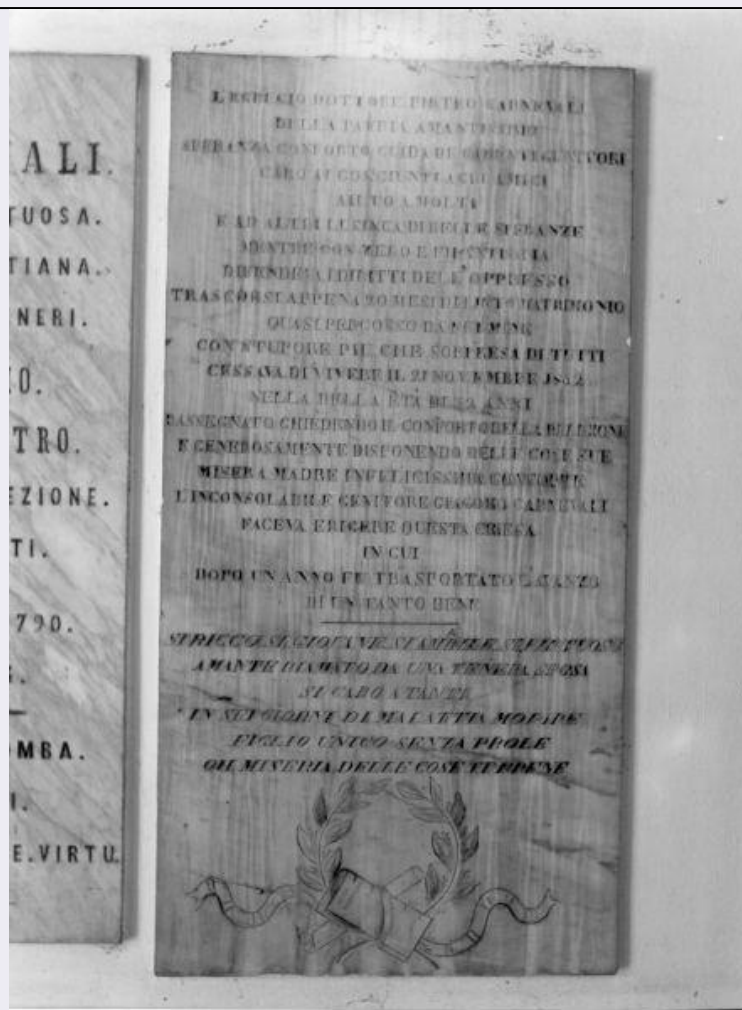 ALI.
TUOSA.
TIANA.
NERI.
O.
TRO.
EZIONE.
TI.
790.
OMBA.
I.
E.VIRTU.
L'EGREGIO DOTTORE PIETRO CARNEVALI
DELLA PATRIA AMANTISSIMO
SPERANZA CONFORTO GUIDA DI GENITORI
CARO AI CONGIUNTI AGLI AMICI
AIUTO A MOLTI
E AD ALTRI LUSINGA DI BELLE SPERANZE
MENTRE CON ZELO E
DIFENDEA I DIRITTI DELL'OPPRESSO
TRASCORSI APPENA 20 MESI DI LIETO MATRIMONIO
QUASI PERCOSSO DA FULMINE
CON STUPORE PIU CHE SORPRESA DI TUTTI
CESSAVA DI VIVERE IL 21 NOVEMBRE
NELLA BELLA ETÀ DI ANNI
RASSEGNATO CHIEDENDO IL CONFORTO DELLA RELIGIONE
E GENEROSAMENTE DISPONENDO DELLE COSE SUE
MISERA MADRE INFELICISSIMA CONSORTE
L'INCONSOLABILE GENITORE GIACOMO CARNEVALI
FACEVA ERIGERE QUESTA CHIESA
IN CUI
DOPO UN ANNO FU TRASPORTATO L'AVANZO
DI UN TANTO BENE
SI RICCO SI GIOVANE SI AMABILE SI VIRTUOSO
AMANTE RIAMATO DA UNA TENERA SPOSA
SI CARO A TANTI
IN SEI GIORNI DI MALATTIA MORIRE
FIGLIO UNICO SENZA PROLE
OH MISERIA DELLE COSE TERRENE